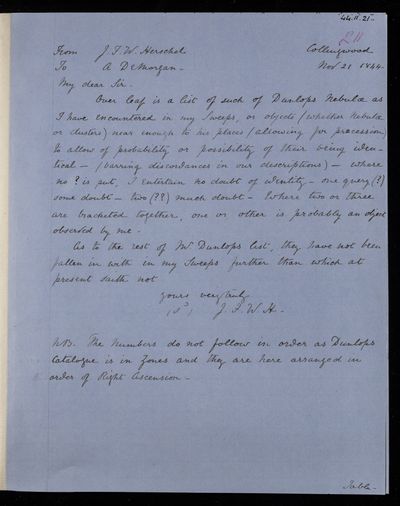 44.11.21.
211
From J. F. W. Herschel Collingwood
To A De Morgan. Nov. 21 1844.
My dear Sir.
Over leaf is a list of such of Dunlops Nebulæ as
I have encountered in my Sweeps, or objects (whether Nebulæ
or clusters) near enough to his places (allowing for precession)
to allow of probability or possibility of their being iden-
tical — (barring discordances in our descriptions) — where
no ? is put, I entertain no doubt of identity — one query (?)
some doubt — two (??) much doubt — Where two or three
are bracketed together, one or other is probably an object
observed by me.
As to the rest of Mr Dunlops list, they have not been
fallen in with in my Sweeps further than which at
present saith not
yours very truly
(sd) J. F. W. H.—
N.B. The Numbers do not follow in order as Dunlops
Catalogue is in Zones and they are here arranged in
order of Right Ascension —
Table —